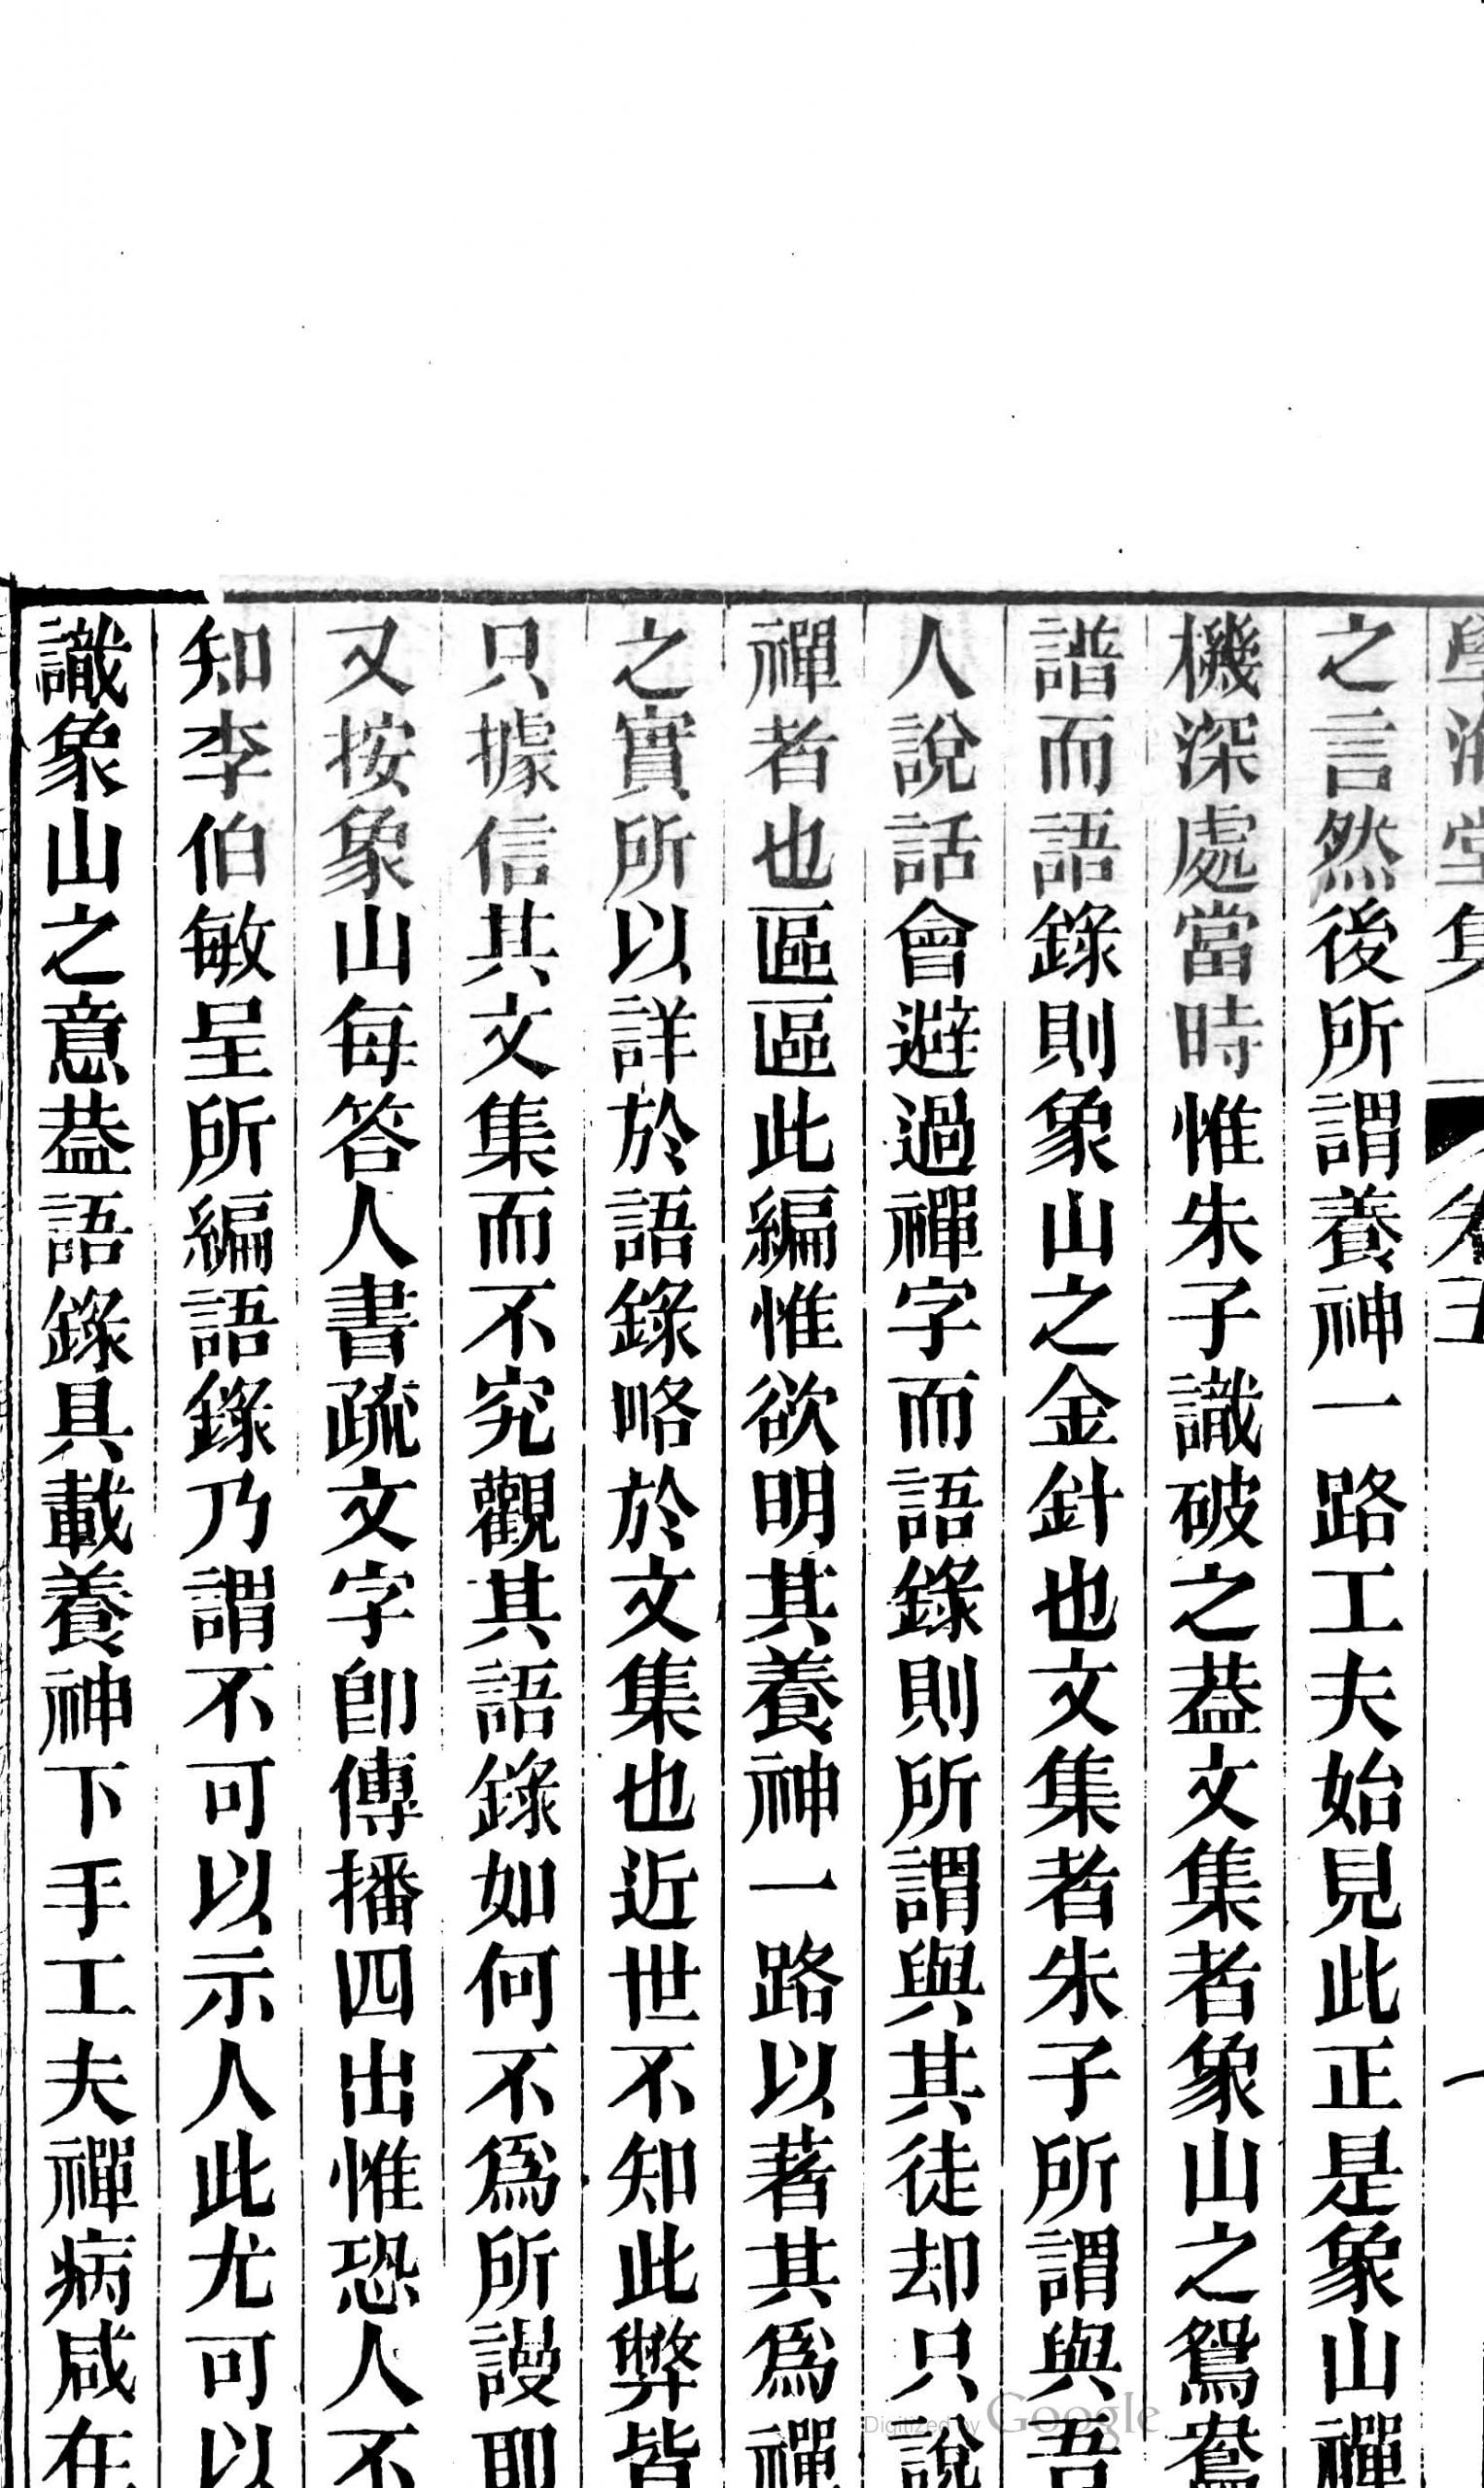 之言然後所謂養神一路工夫始見此正是象山禪
機深處當時惟朱子識破之葢文集者象山之鴛鴦
譜而語錄則象山之金針也文集者朱子所謂與吾
人說話會避過禪字而語錄則所謂與其徒却只說
禪者也區區此編惟欲明其養神一路以著其爲禪
之實所以詳於語錄略於文集也近世不知此弊皆
只據信其文集而不究觀其語錄如何不爲所謾耶
又按象山每答人書疏文字卽傳播四出惟恐人不
知李伯敏呈所編語錄乃謂不可以示人此尤可以
識象山之意葢語錄具載養神下手工夫禪病咸在
Digitized by Google